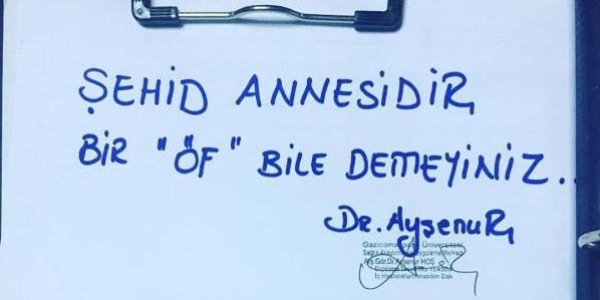 ŞEHİD ANNESİDİR
BİR "ÖF" BİLE DEMEYİNİZ..
Dr. AyşenuR
Gaziosmanpaşa Üniversitesi
Arş.Gör.Dr.Ayşenur HOŞ
İç Hastalıkları Anabilim Dalı